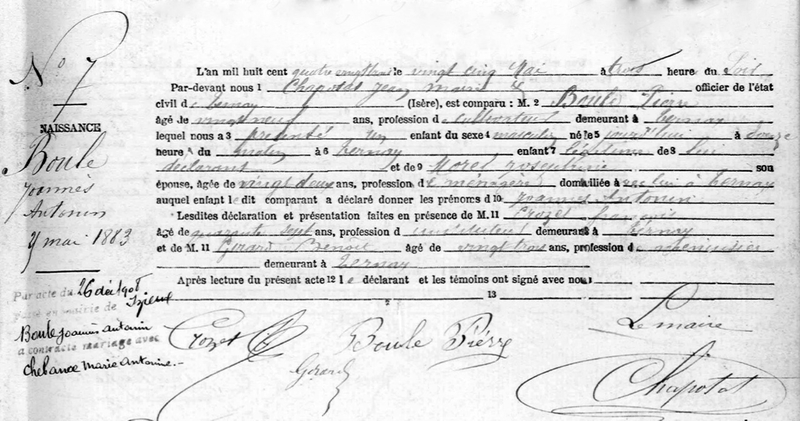 No 7
NAISSANCE
Boule
Joannès
Antonin
mai 1883
Par acte du 26 déc 1908
en mairie de Izieux
Boule Joannès Antonin
a contracté mariage avec
Chebance Marie Antoine.-
L'an mil huit cent quatre vingt trois le vingt cinq Mai à trois heure du Soir
Par-devant nous 1 Chapotat Jean maire officier de l'état
civil de Ternay (Isère), est comparu : M. 2 Boule Pierre
âgé de vingt neuf ans, profession de cultivateur demeurant à Ternay
lequel nous a 3 présenté un enfant du sexe 4 masculin né le 5 jourd'hui à onze
heure du matin à 6 Ternay enfant 7 légitime de 8 lui
déclarant et de 9 Morel son
épouse, âgée de vingt deux ans, profession de ménagère domiciliée avec lui à Ternay
auquel enfant le dit comparant a déclaré donner les prénoms d 10 Joannès Antonin
Lesdites déclaration et présentation faites en présence de M. 11 Crozet françois
âgé de quarante sept ans, profession d instituteur demeurant à Ternay
et de M. 11 Girard Benoit âgé de vingt trois ans, profession de menuisier
demeurant à Ternay
Après lecture du présent acte 12 le déclarant et les témoins ont signé avec nous
13
Crozet Boule Pierre Le maire
Girard Chapotat